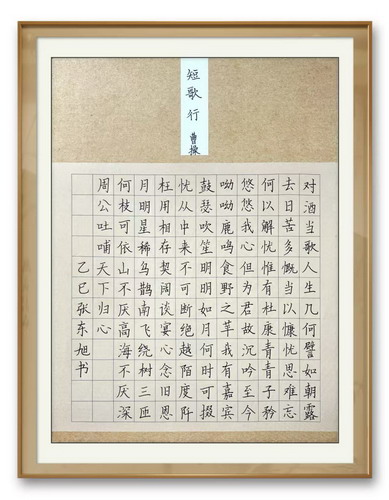 短歌行 曹操
对酒当歌人生几何譬如朝露
去日苦多慨当以慷忧思难忘
何以解忧惟有杜康青青子衿
悠悠我心但为君故沉吟至今
呦呦鹿鸣食野之苹我有嘉宾
鼓瑟吹笙明明如月何时可掇
忧从中来不可断绝越陌度阡
枉用相存契阔谈宴心念旧恩
月明星稀乌鹊南飞绕树三匝
何枝可依山不厌高海不厌深
周公吐哺天下归心
乙巳张东旭书